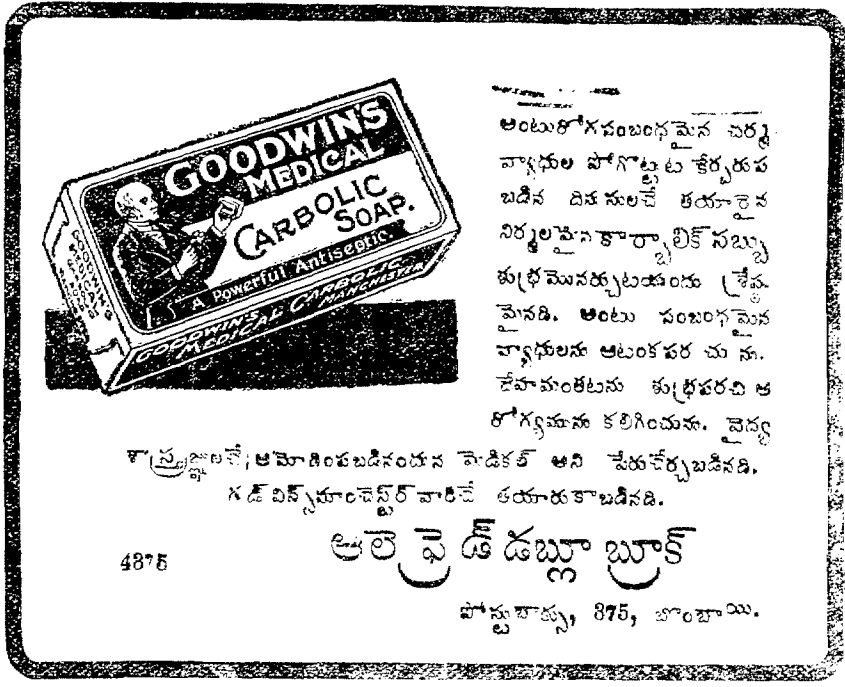 GOODWIN'S
MEDICAL
CARBOLIC
SOAP.
A Powerful Antiseptic.
GOODWIN'S
MEDICAL CARBOLIC
MANCHESTER
అంటురోగసంబంధమైన చర్మ
వ్యాధుల పోగొట్టుట కేర్పరుప
బడిన దినుసులచే తయారైన
నిర్మలమైన కార్బాలిక్ సబ్బు
శుభ్రమొనర్చుటయందు శ్రేష్ఠ
మైనది. అంటు సంబంధమైన
వ్యాధులను ఆటంకపర చు ను.
దేహమంతటను శుభ్రపరచి ఆ
రోగ్యమును కలిగించును. వైద్య
శాస్త్రజ్ఞులచే ఆమోదింపబడినందున మెడికల్ అని పేరుచేర్చబడినది.
గుడ్ విన్స్ మాంచెస్టర్ వారిచే తయారుకాబడినది.
ఆలెఫ్రెడ్ డబ్లూ బ్రూక్
4375
పోస్టుబాక్సు, 375, బొంబాయి.